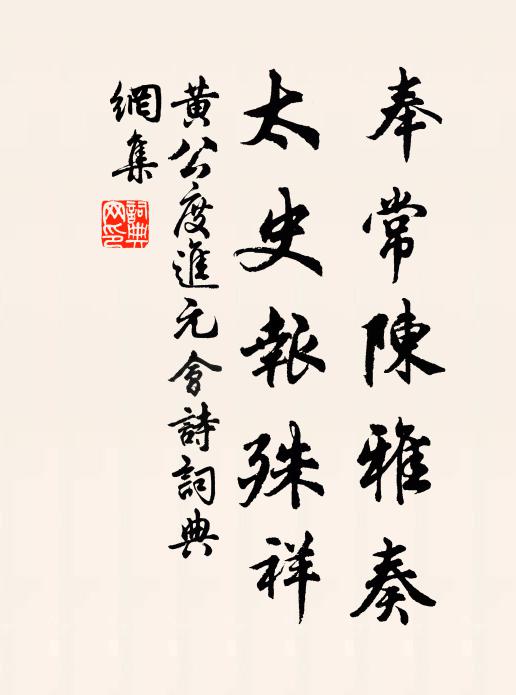 奉常陳雅奏
太史報殊祥
黃公度進元會詩詞典
網集
詞典
网印